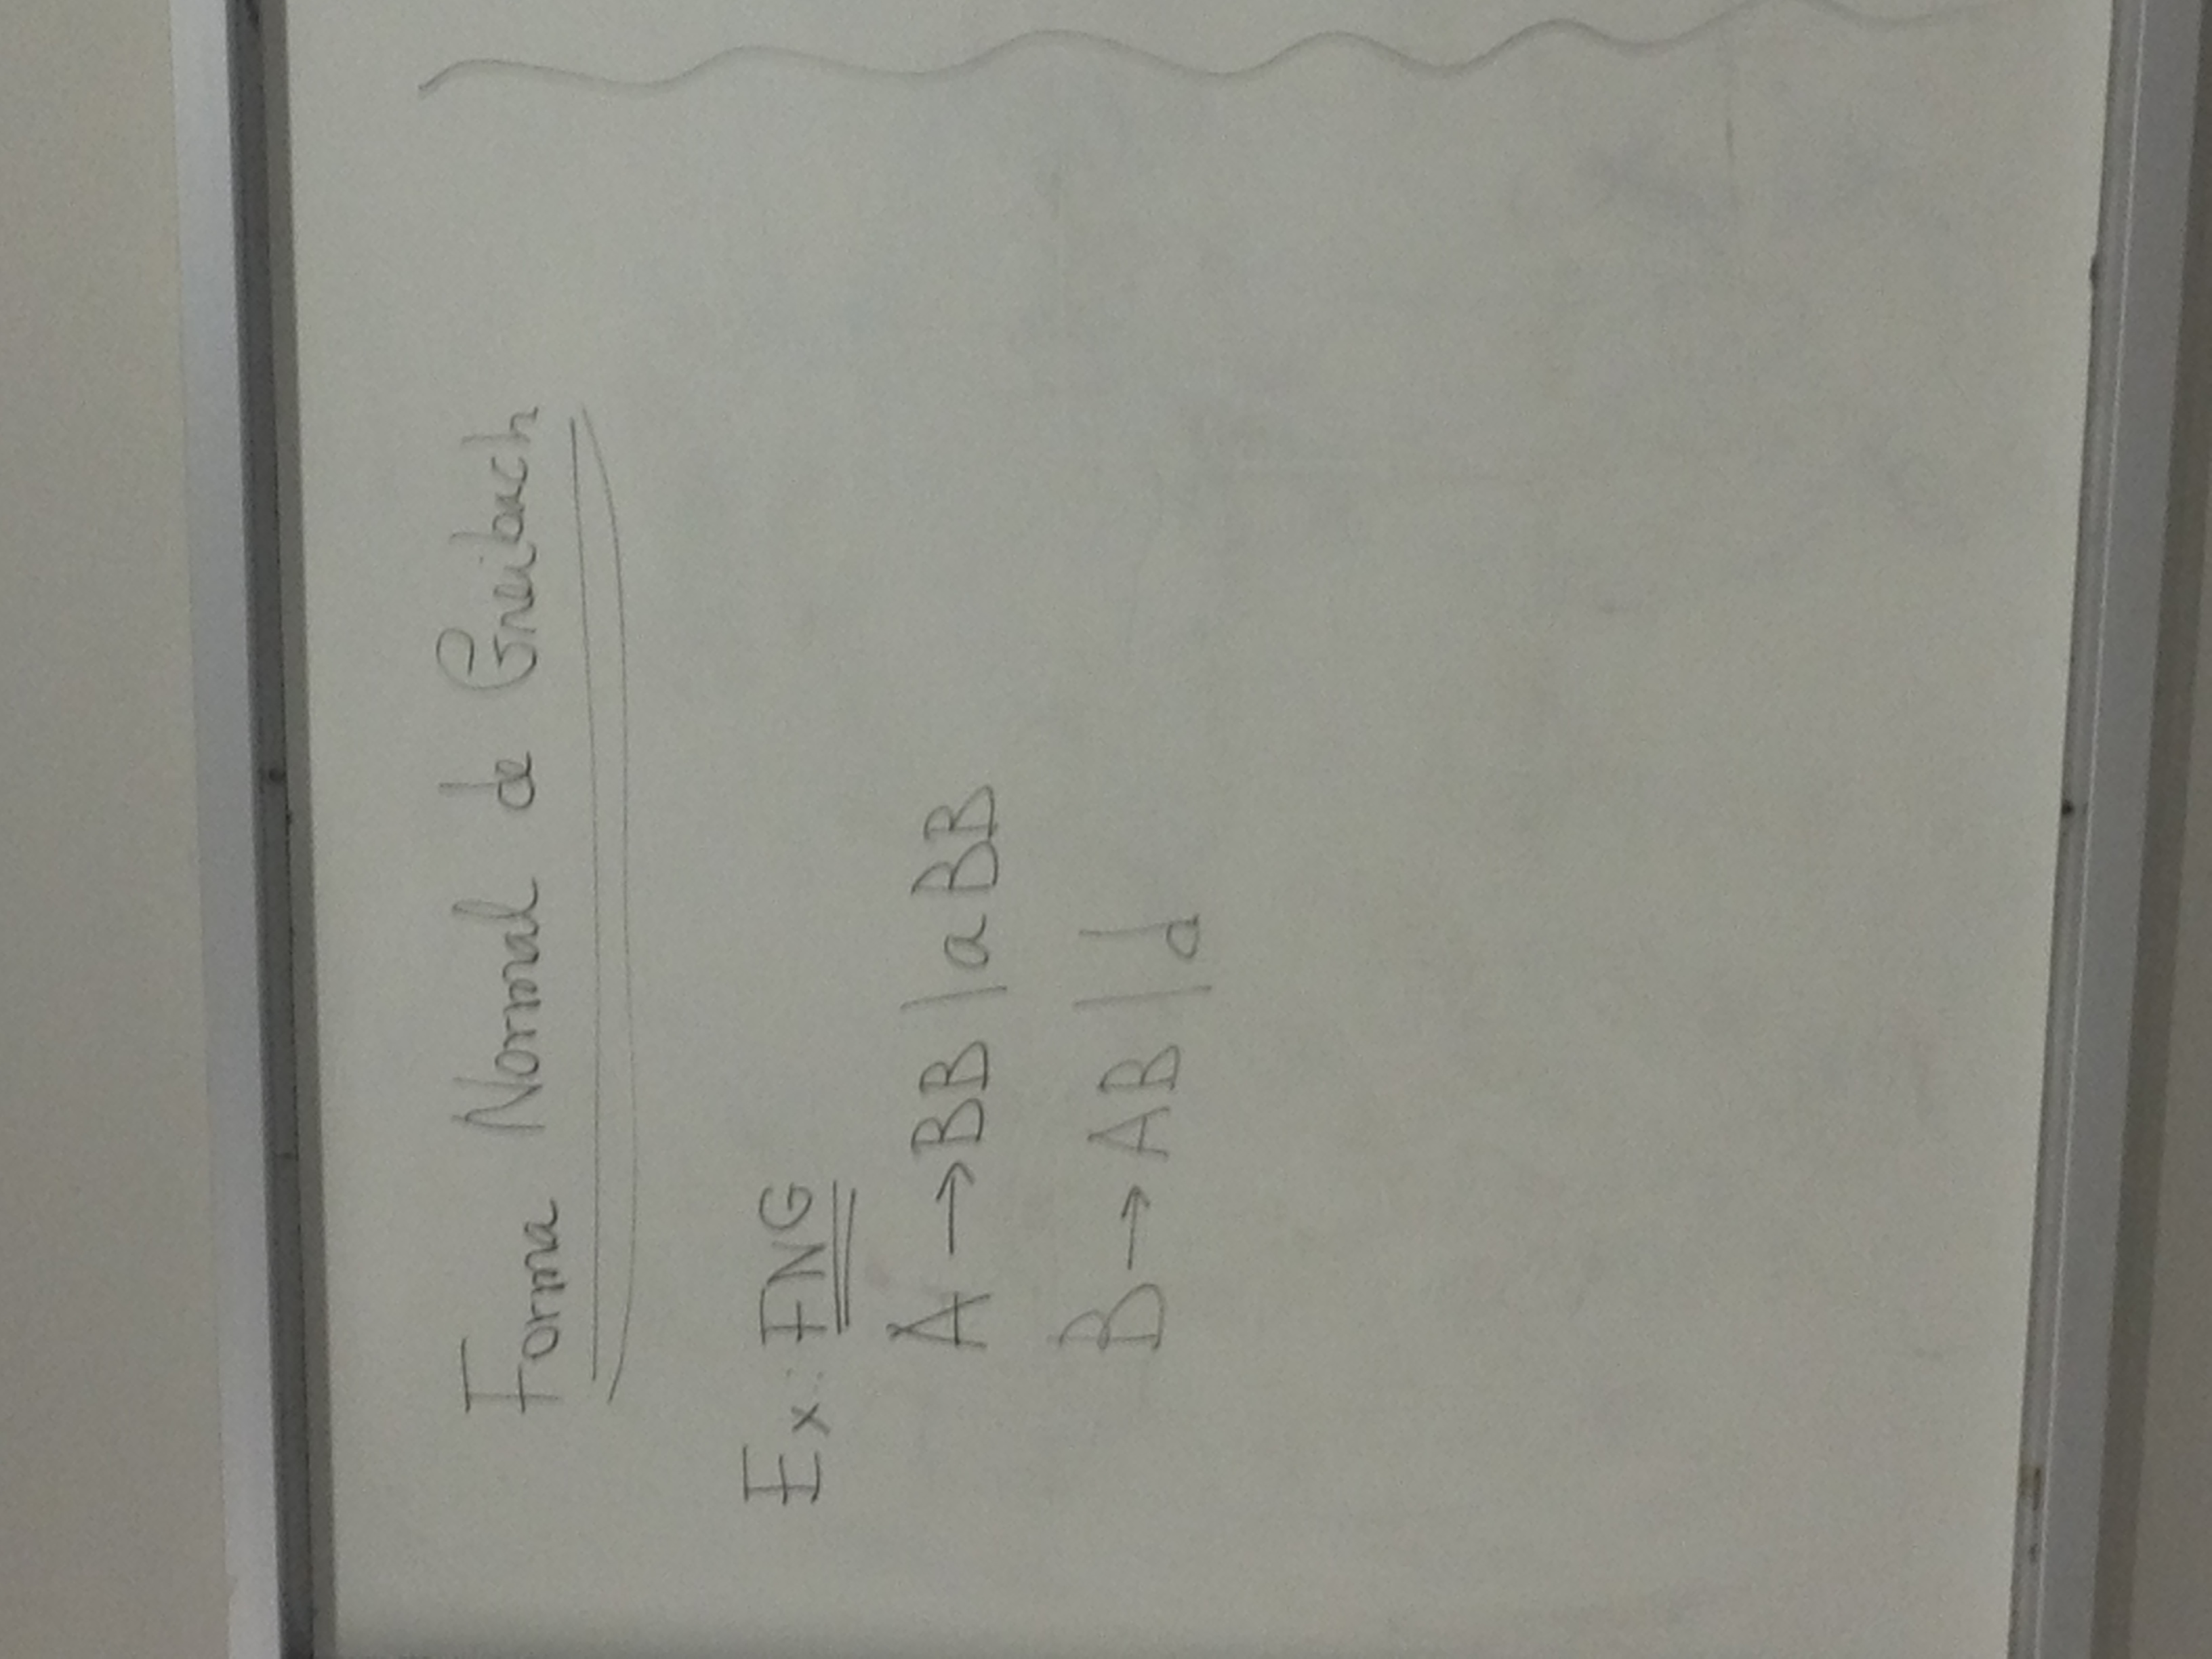 Forma Normal de Greibach
Ex: FNG
A → BB | a BB
B → AB | d